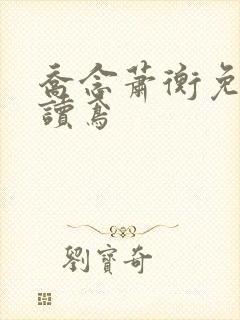 喬念蕭衡免
讀鳶
劉寶奇